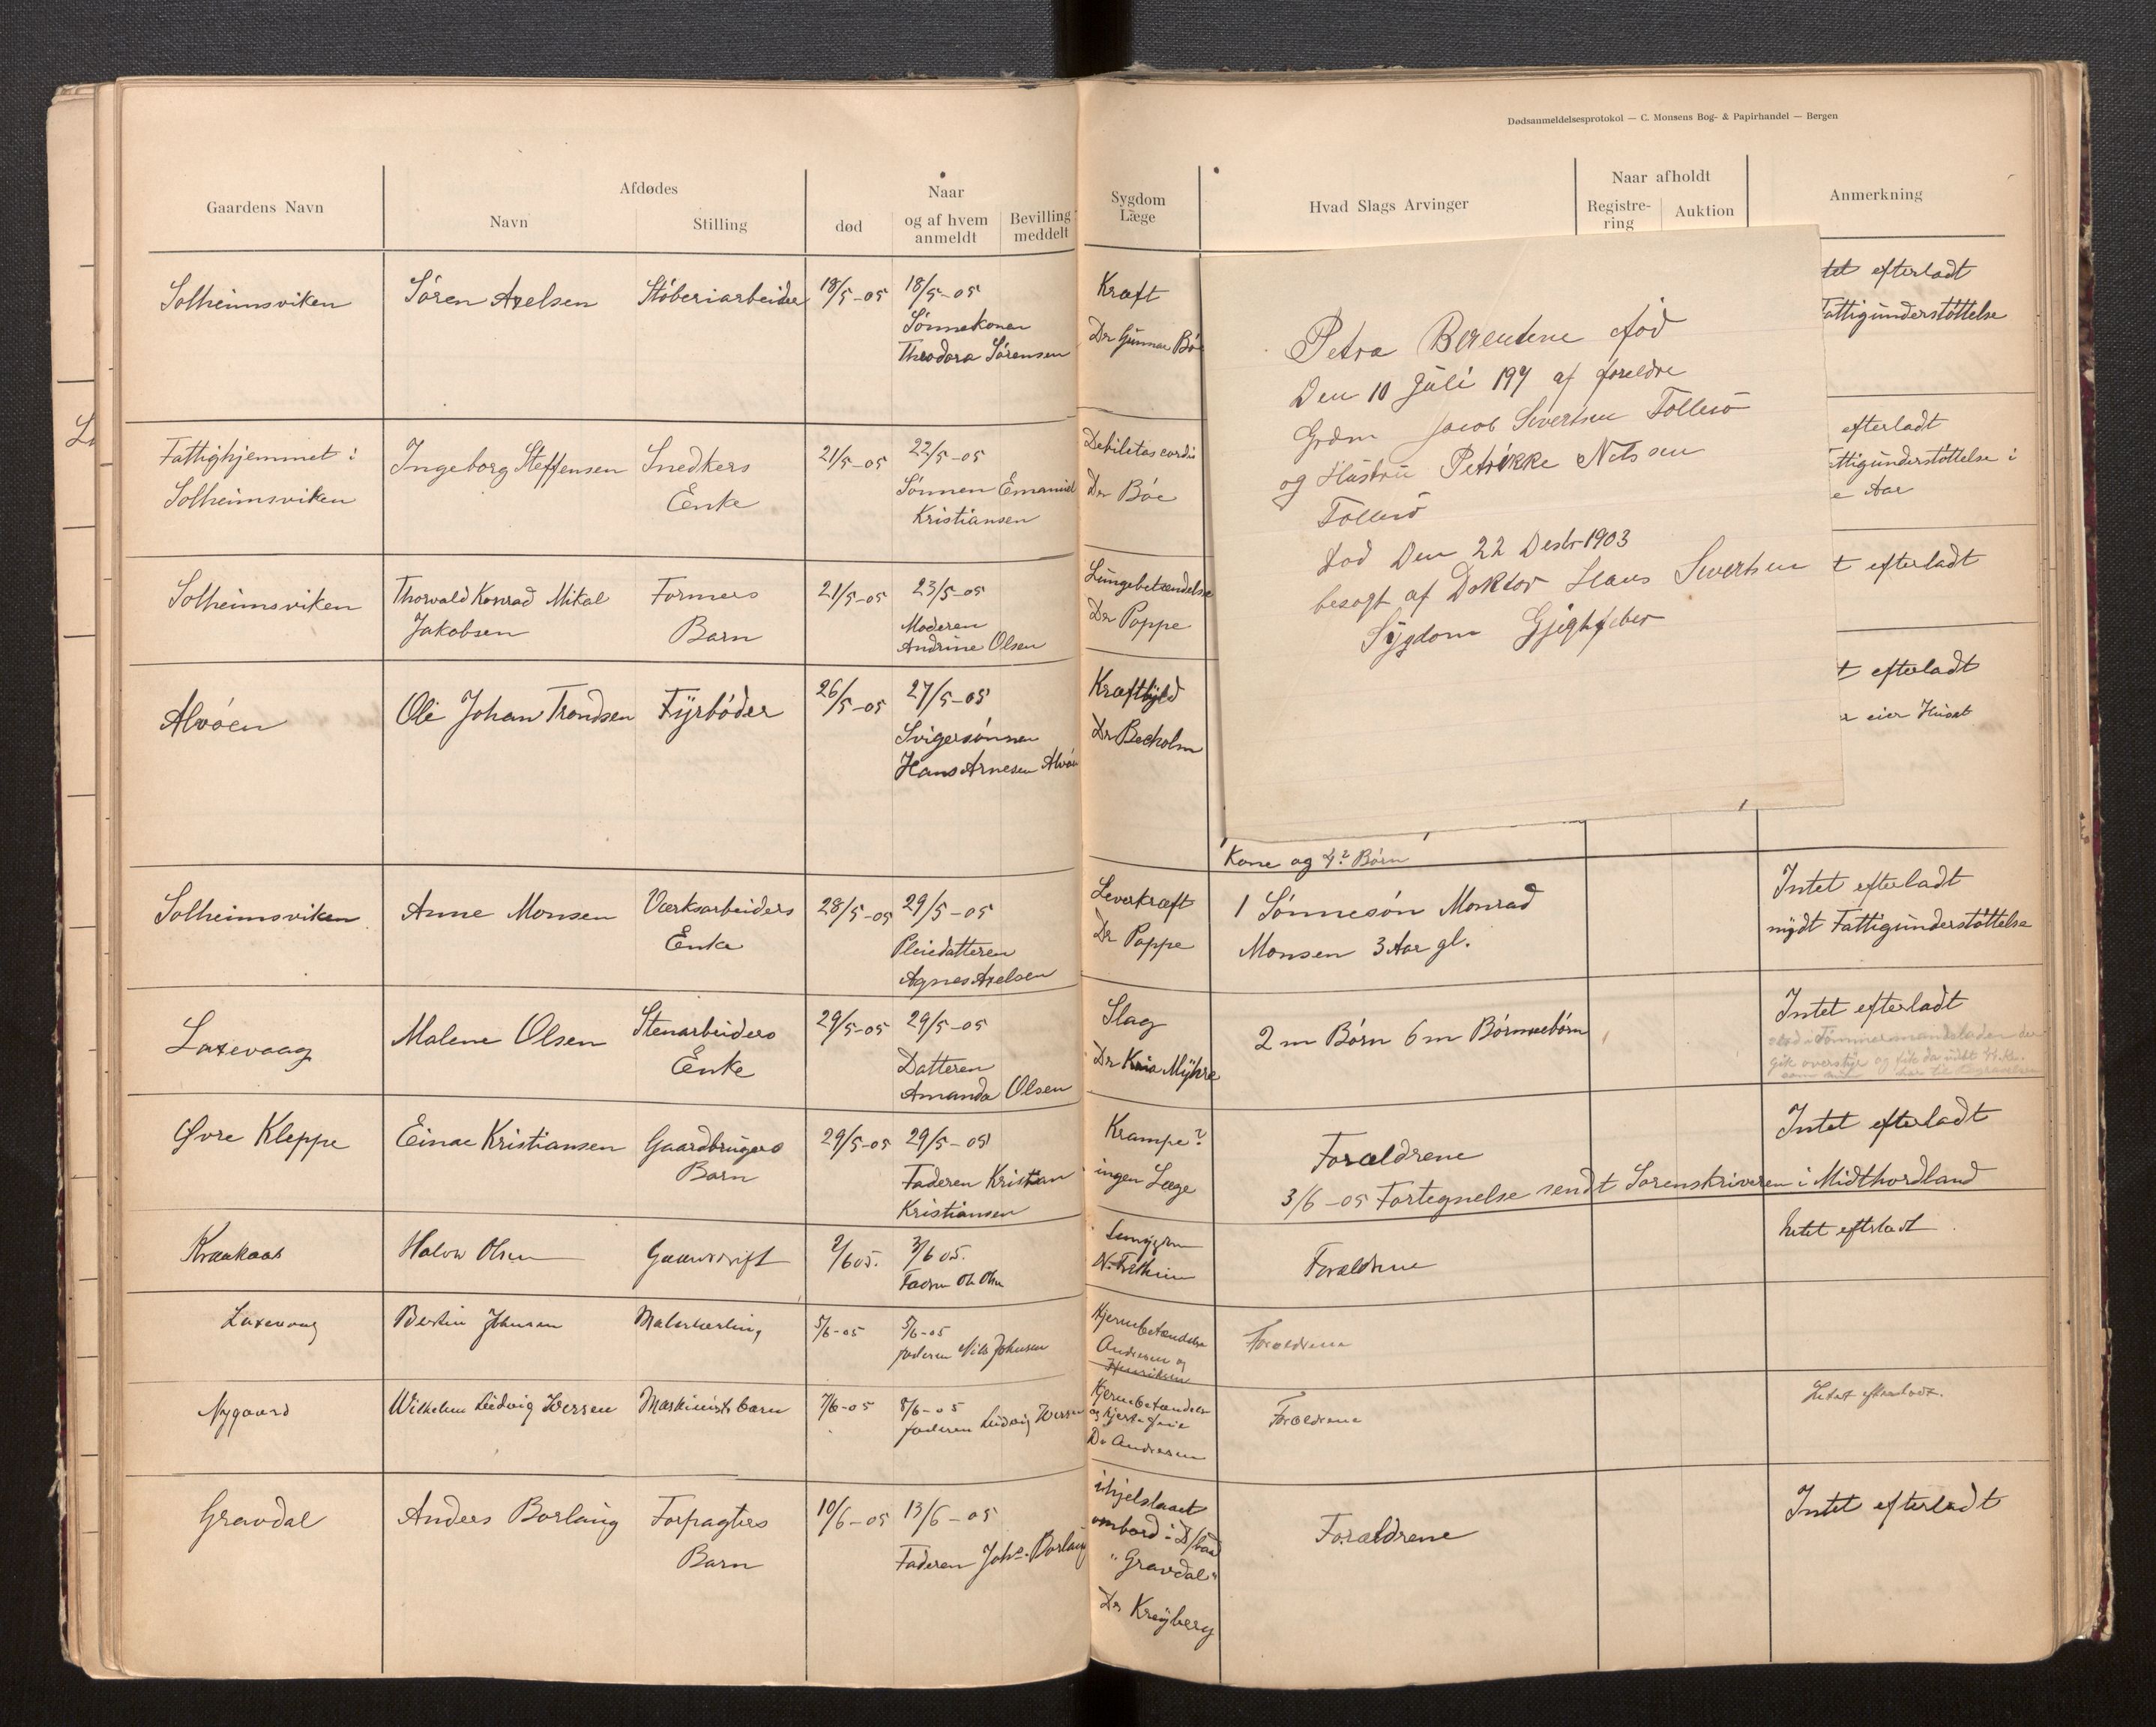 Dødsanmeldelsesprotokol — C. Monsens Bog- & Papirhandel — Bergen
Gaardens Navn
Afdødes
Navn
Stilling
Naar
død
og af hvem anmeldt
Bevilling meddelt
Sygdom
Læge
Hvad Slags Arvinger
Naar afholdt
Registre-
ring
Auktion
Anmerkning
Solheimsviken Sören Axelsen Stöberiarbeider 18/5-05 18/5-05
Sönnekonen
Theodora Sörensen
Kræft
Dr Gunnar Böe
tet efterladt
Fattigunderstöttelse
Fattighjemmet i
Solheimsviken
Ingeborg Steffensen
Snedkers
Enke
21/5-05
22/5-05
Sönnen Emanuel
Kristiansen
Debilitas cordis
Dr Böe
efterladt
ttigunderstöttelse i
e Aar
Solheimsviken
Thorvald Konrad Mikal
Jakobsen
Formers
Barn
21/5-05
23/5-05
Moderen
Andrine Olsen
Lungebetændelse
Dr Poppe
t efterladt
Alvöen
Ole Johan Trondsen
Fyrböder
26/5-05
27/5-05
Svigersönnen
Hans Arnesen Alvöen
Kræftbyld
Dr Beckolm
t efterladt
r eier Huset
Kone og 4? Börn
Petra Berentine fød
Den 10 Juli 197 af foreldre
Grdm Jacob Sivertsen Follesö
og Hustru Petrikke Nilssen
Follesö
død Den 22 Desbr 1903
besogt af Doktor Hans Sivertsen
Sygdom Gjightfeber
Solheimsviken
Anne Monsen
Værksarbeiders
Enke
28/5-05
29/5-05
Pleiedatteren
Agnes Axelsen
Leverkræft
Dr Poppe
1 Sönnesön Monrad
Monsen 3 Aar gl.
Intet efterladt
nydt Fattigunderstöttelse
Laxevaag
Malene Olsen
Stenarbeiders
Enke
29/5-05
29/5-05
Datteren
Amanda Olsen
Slag
Dr Kria Myhre
2 m Börn 6 m Börnebörn
Intet efterladt
Øvre Kleppe
Einar Kristiansen
Gaardbrugers
Barn
29/5-05
29/5-05
Faderen Kristian
Kristiansen
Krampe?
ingen Læge
Forældrene
3/6-05 Fortegnelse sendt Sorenskriveren i Midthordland
Intet efterladt
Kraakaas
Halvor Olsen
Gaardsdrift
2/6 05.
3/6 05.
Fadren Ol. Olsen
Forældrene
Intet efterladt
Laxevaag
Bertin Johnsen
Malerlærling
5/6-05
5/6-05
faderen Nils Johnsen
Hjernebetændelse
Andresen og
Henriksen
Forældrene
Nygaard
Wilhelm Ludvig Iversen
Maskinists barn
7/6-05
8/6-05
faderen Ludvig Iversen
Hjernebetændelse
Dr Andresen
Forældrene
Intet efterladt.
Gravdal
Anders Borlaug
Forpagters
Barn
10/6-05
13/6-05
Faderen Johs. Borlaug
ihjelslaaet
ombord i D/baad
"Gravdal"
Dr Kreyberg
Forældrene
Intet efterladt